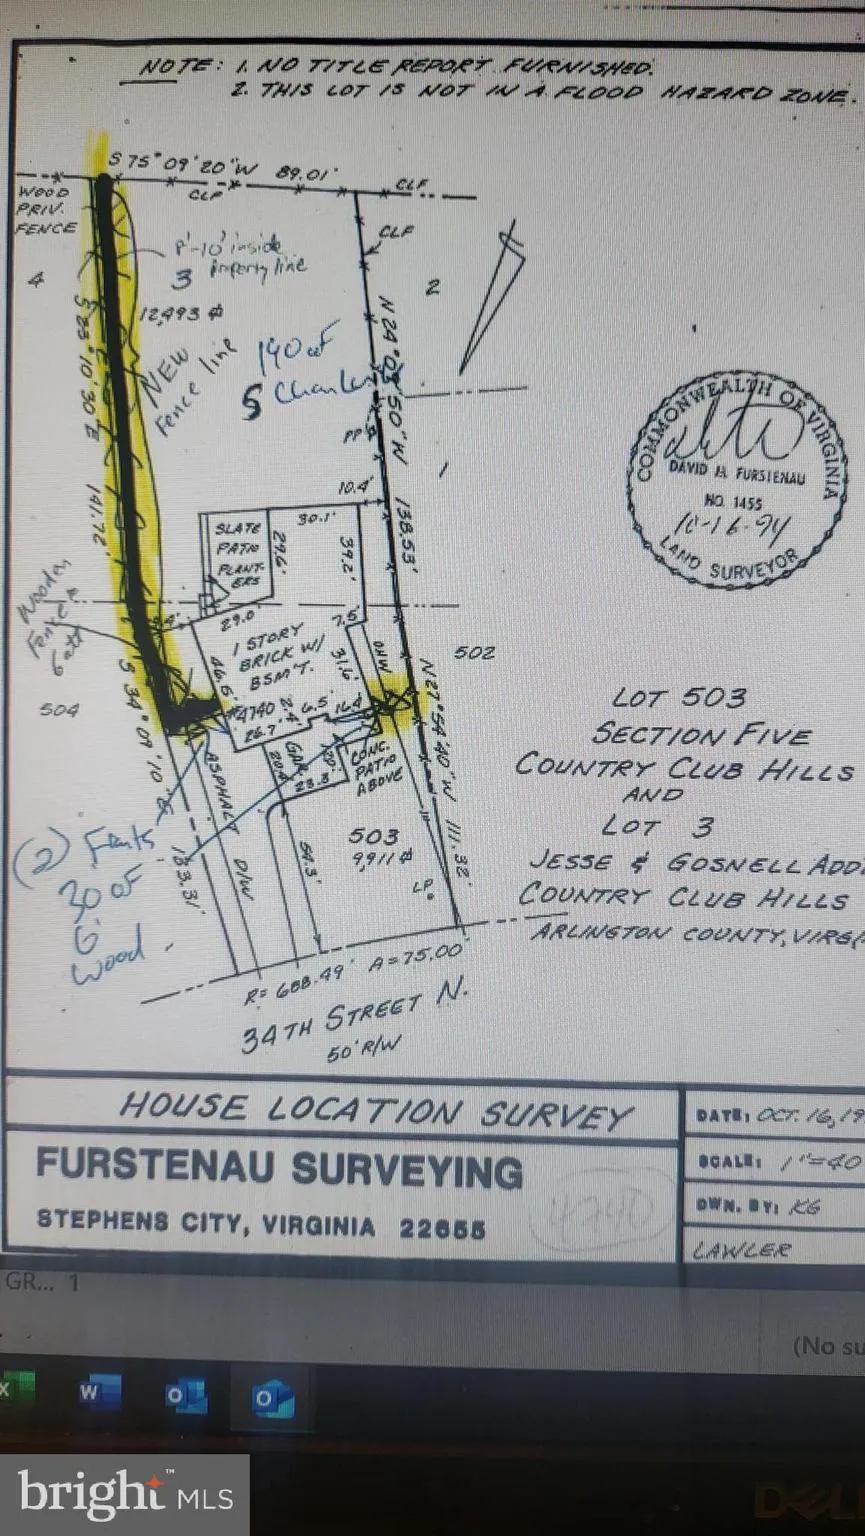 NOTE: 1. NO TITLE REPORT FURNISHED.
2. THIS LOT IS NOT IN A FLOOD HAZARD ZONE.
S 75°09'20"W 89.01'
CLF
CLF
WOOD
PRIV.
FENCE
CLF
8'-10' inside
property line
3
4
2
12,493
S 23°10'30"E 141.72'
NEW
Fence line
190 of
5 Chainlink
N 24°03'50"W 138.53'
PP
1
10.4'
30.1'
SLATE
PATIO
PLANT-
ERS
29.6'
39.2'
Wooden
Fence &
Gate
9.4'
29.0'
7.5'
1 STORY
BRICK W/
BSM'T.
46.5'
31.6'
OHW
502
504
#4740
6.5'
16.4'
26.7'
S 34°09'10"E 183.31'
N 27°54'40"W 111.32'
ASPHALT D/W
GAR.
23.3'
CONC.
PATIO
ABOVE
54.3'
503
9,911
LP
(2) Fronts
30 of
6'
Wood
R= 688.49' A=75.00'
34TH STREET N.
50' R/W
COMMONWEALTH OF VIRGINIA
DAVID M. FURSTENAU
NO. 1455
10-16-94
LAND SURVEYOR
LOT 503
SECTION FIVE
COUNTRY CLUB HILLS
AND
LOT 3
JESSE & GOSNELL ADD
COUNTRY CLUB HILLS
ARLINGTON COUNTY, VIRG
HOUSE LOCATION SURVEY
DATE: OCT. 16, 19
FURSTENAU SURVEYING
SCALE: 1"=40
STEPHENS CITY, VIRGINIA 22655
4740
DWN. BY: KG
LAWLER
GR... 1
(No su
bright™ MLS
DELL